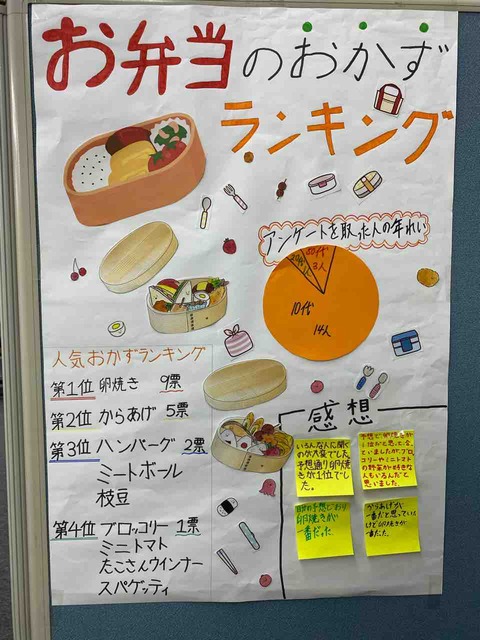 お弁当のおかず
ランキング
アンケートを取った人の年れい
50代
3人
20代
1人
10代
14人
人気おかずランキング
第1位 卵焼き 9票
第2位 からあげ 5票
第3位 ハンバーグ 2票
ミートボール
枝豆
第4位 ブロッコリー 1票
ミニトマト
たこさんウインナー
スパゲッティ
感想
いろんな人に聞く
のが大変でした。
予想通り卵焼
きが1位でし
た。
予想で、卵焼きが
1位だと思って
いましたが、ブロッ
コリーやミニトマト
の野菜が好きな
人もいるんだと
思いました。
予想どおり
卵焼きが
一番だった。
からあげが
一番だと思っていた
けど卵焼きが
一番だた。